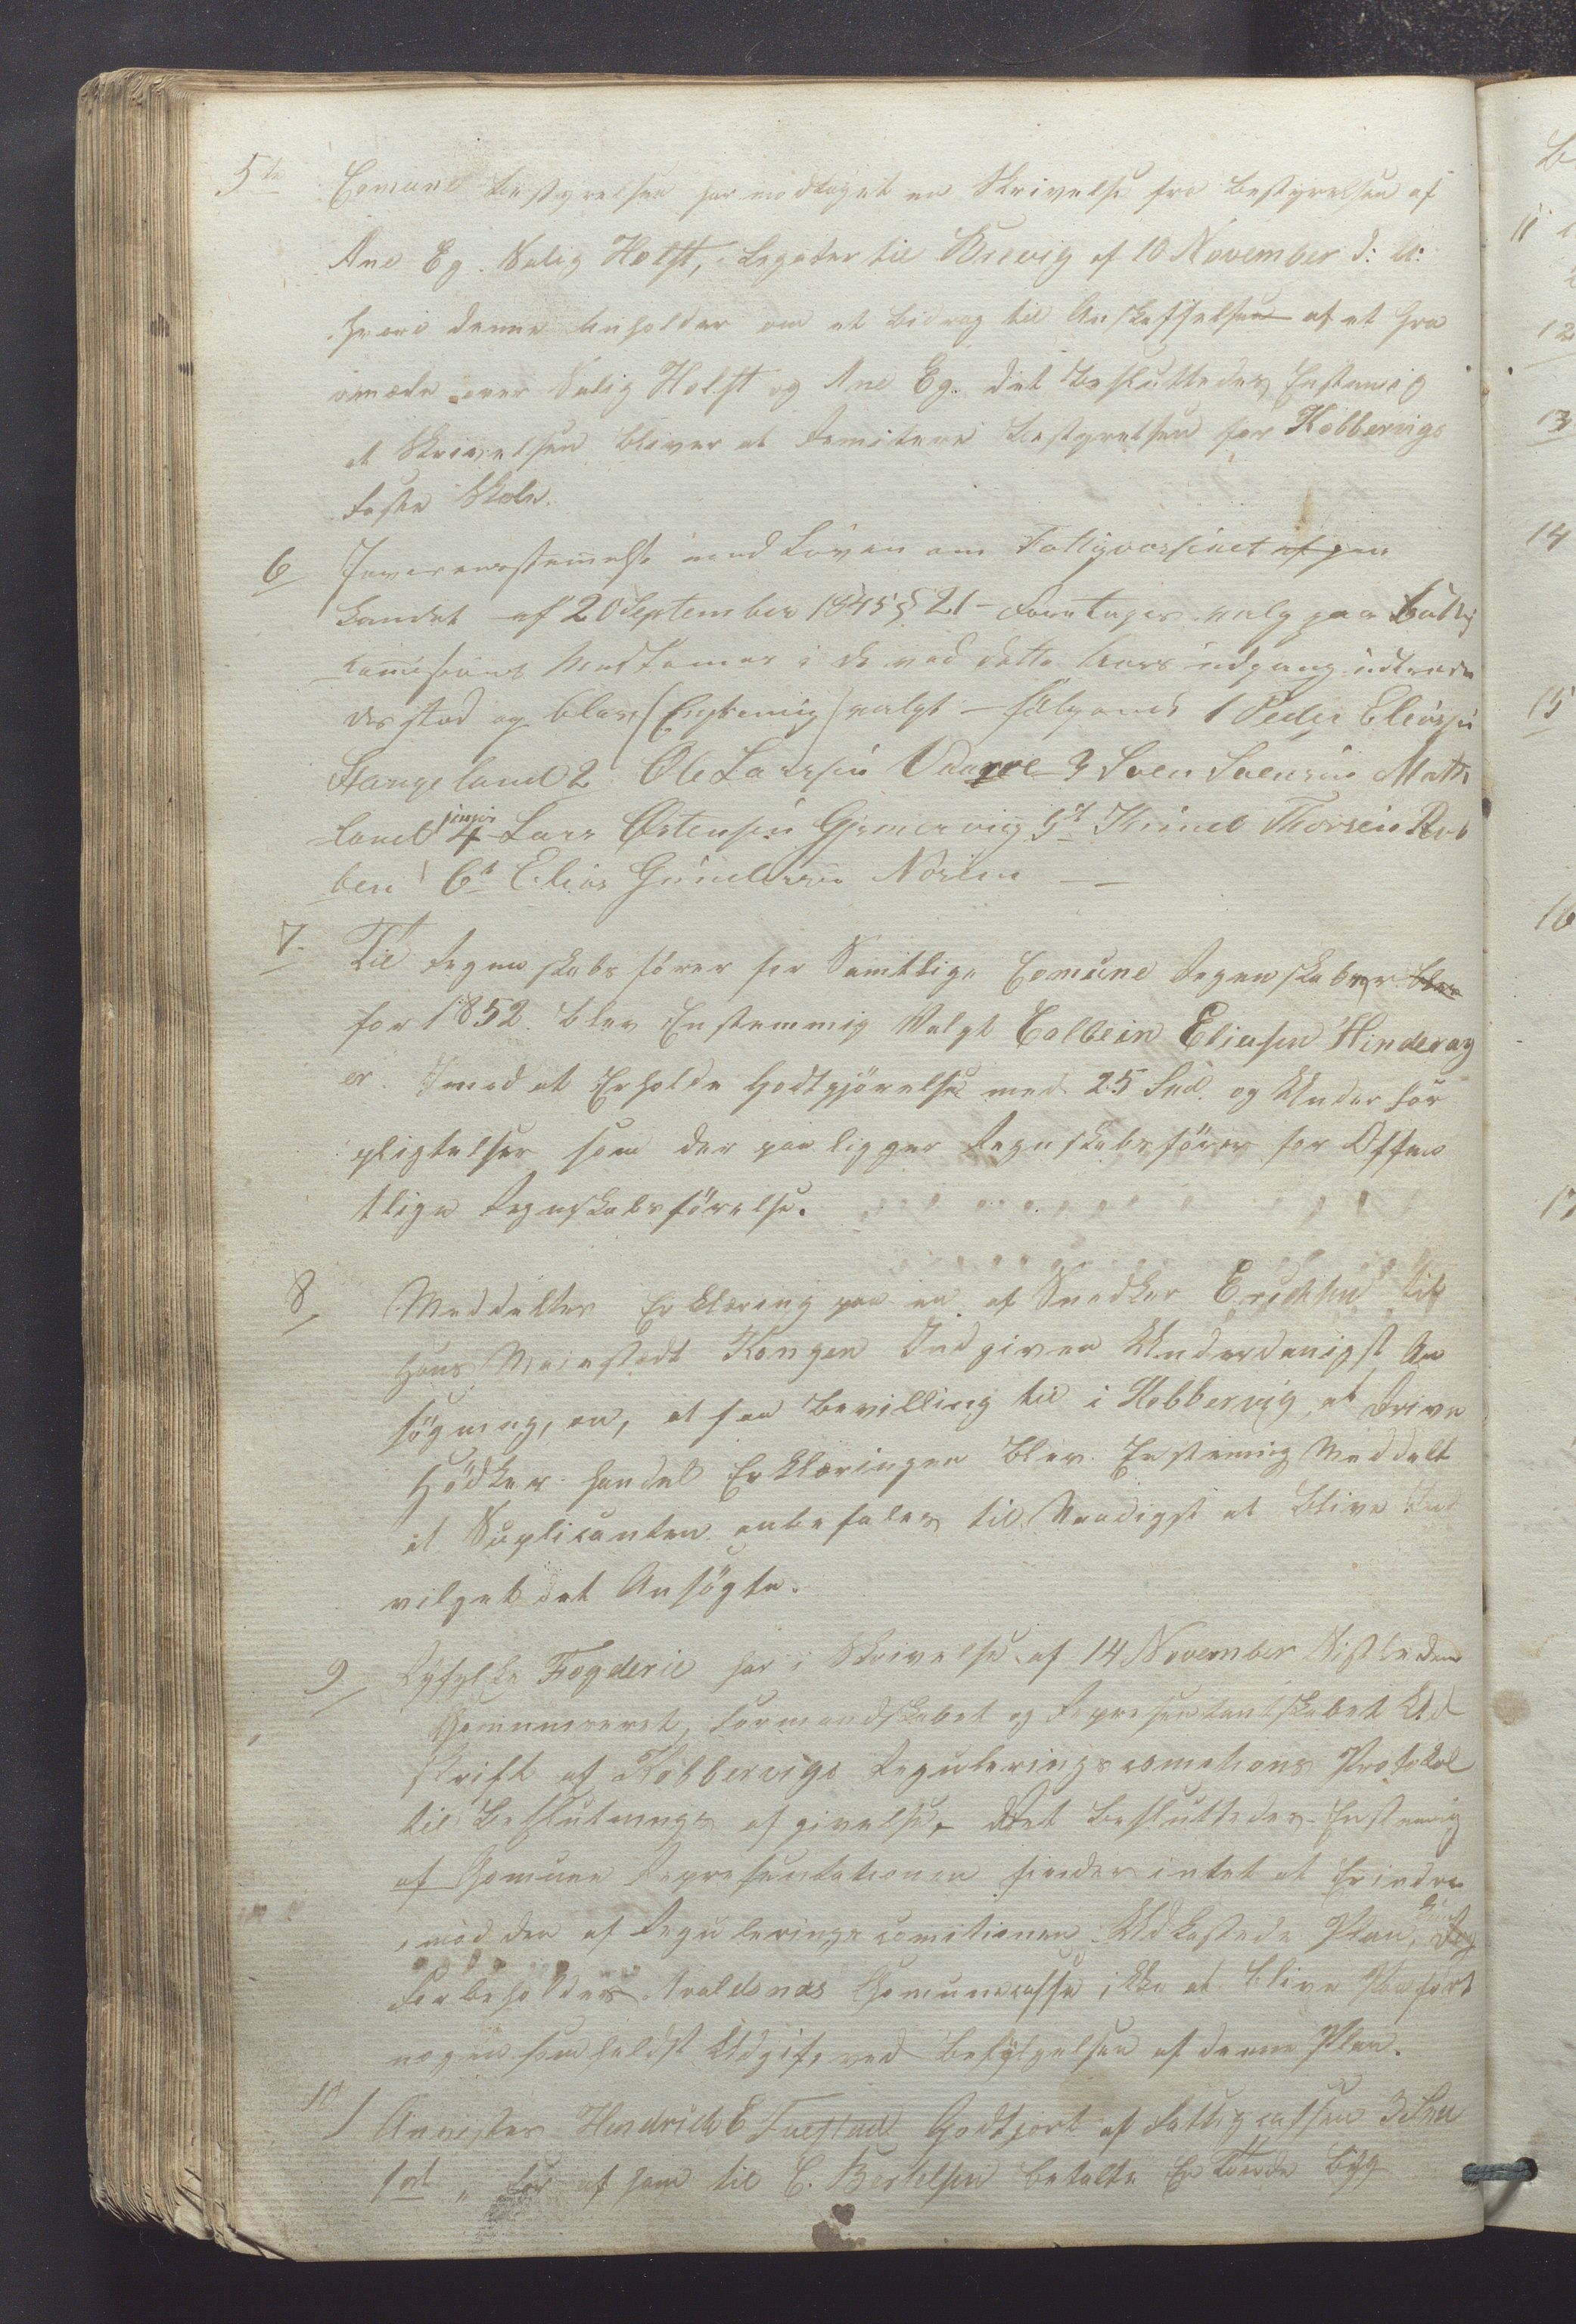 5te Comune Bestyrelsen har modtaget en Skrivelse fra Bestyrelsen af
Ane Eg. Salig Holst, Legater til Brevig af 10 November d: A:
hvori denne Anholder om et Bidrag til Anskaffelsen af et Gra
vmæle over Salig Holst og Ane Eg. det Besluttedes Enstemig
at Skrivelsen bliver at Remitere Bestyrelsen for Kobbervigs
faste Skole.
6 Joverensstemmelse med Loven om Fattigvæsenet
Landet af 20 September 1845 § 21 – Foretages valg paa Fattig
Komisions Medlemer i de ved dette Aars udgang udtræde
des sted og blev (Enstemig) valgt – følgende 1 Peder Eliassen
Stangeland 2 Ole Larssen Vaarre 3 Sven Svensen Mæt
land junior 4 Lars Østensen Gjemervig 5t Knud Thorsen
ben 6t Elias Gundersen Norem
7. Til Regenskabsfører for Samtlige Comune Regenskaber blev
for 1852. blev Enstemmig Valgt Colbein Eliasen Hinderag
er. imod at Erholde Godtgjørelse med 25 Spd. og Under for
pligtelser som der paa ligger Regnskabsfører for Offen
tlige Regnskabsførelse.
8 Meddeltes Erklæring paa en af Snedker Erichsen til
Hans Maiestædt Kongen Indgiven Underdanigst An
søgning, om, at faa Bevilling til i Kobbervig at Drive
Høker handel Erklæringen blev Enstemig Meddelt
at Suplicanten anbefales til Naadigst at blive Ind
vilget det Ansøgte.
9 Ryfylke Fogderie har i Skrivelse af 14 November Sistleden
Comuniceret, Formandskabet og Representantskabet Ud
skrift af Kobbervigs Reguleringscomitions Protokol
til Beslutnings afgivelse, – Det besluttedes Enstemig
af Comune Representationen finder intet at Erindre
imod den af Reguleringscomitionen Udkastede Plan,
Forbeholdes Avaldsnæs Comunecasse ikke at blive Paaført
nogen somheldst Udgift, ved Befølgelsen af denne Plan.
10 Anvistes Hendrich E Fuestad Godtjort af Fattigcassen 3 Spd
1 ort „ for af ham til C. Bertelsen betalte En Tønde Byg